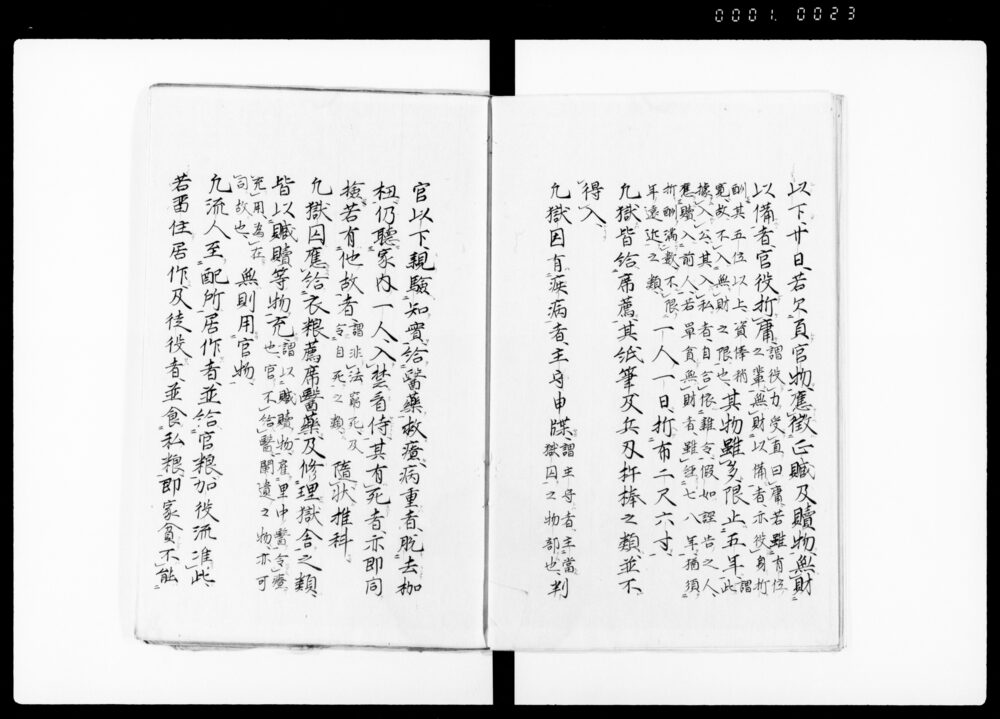 0001.0023
以下廿日若欠負官物應徵正贓及贖物無財
以備者官役折庸謂役力受直曰庸若雖有位
之輩無財以備者亦役身折
酬其五位以上資俸稍
寛故不入無財之限也其物雖多限止五年謂
此
據入公其入私者自合依雜令假如誣告之人
應贖入前人若單貧無財者雖經七八年猶須
折酬滿數不限
年遠近之類一人一日折布二尺六寸
凡獄皆給席薦其紙筆及兵刃杵棒之類並不
得入
凡獄囚有疾病者主守申牒謂主守者主當
獄囚之物部也判
官以下親驗知實給醫藥救療病重者脱去枷
杻仍聽家内一人入禁看侍其有死者亦即同
檢若有他故者謂非法窮死及
令自死之類隨状推科
凡獄囚應給衣粮薦席醫藥及修理獄舎之類
皆以贓贖等物充謂以贓贖物雇里中醫令療
也官不給醫闌遺之物亦可
充用為在
司故也無則用官物
凡流人至配所居作者並給官粮加役流准此
若留住居作及徒役者並食私粮即家貧不能